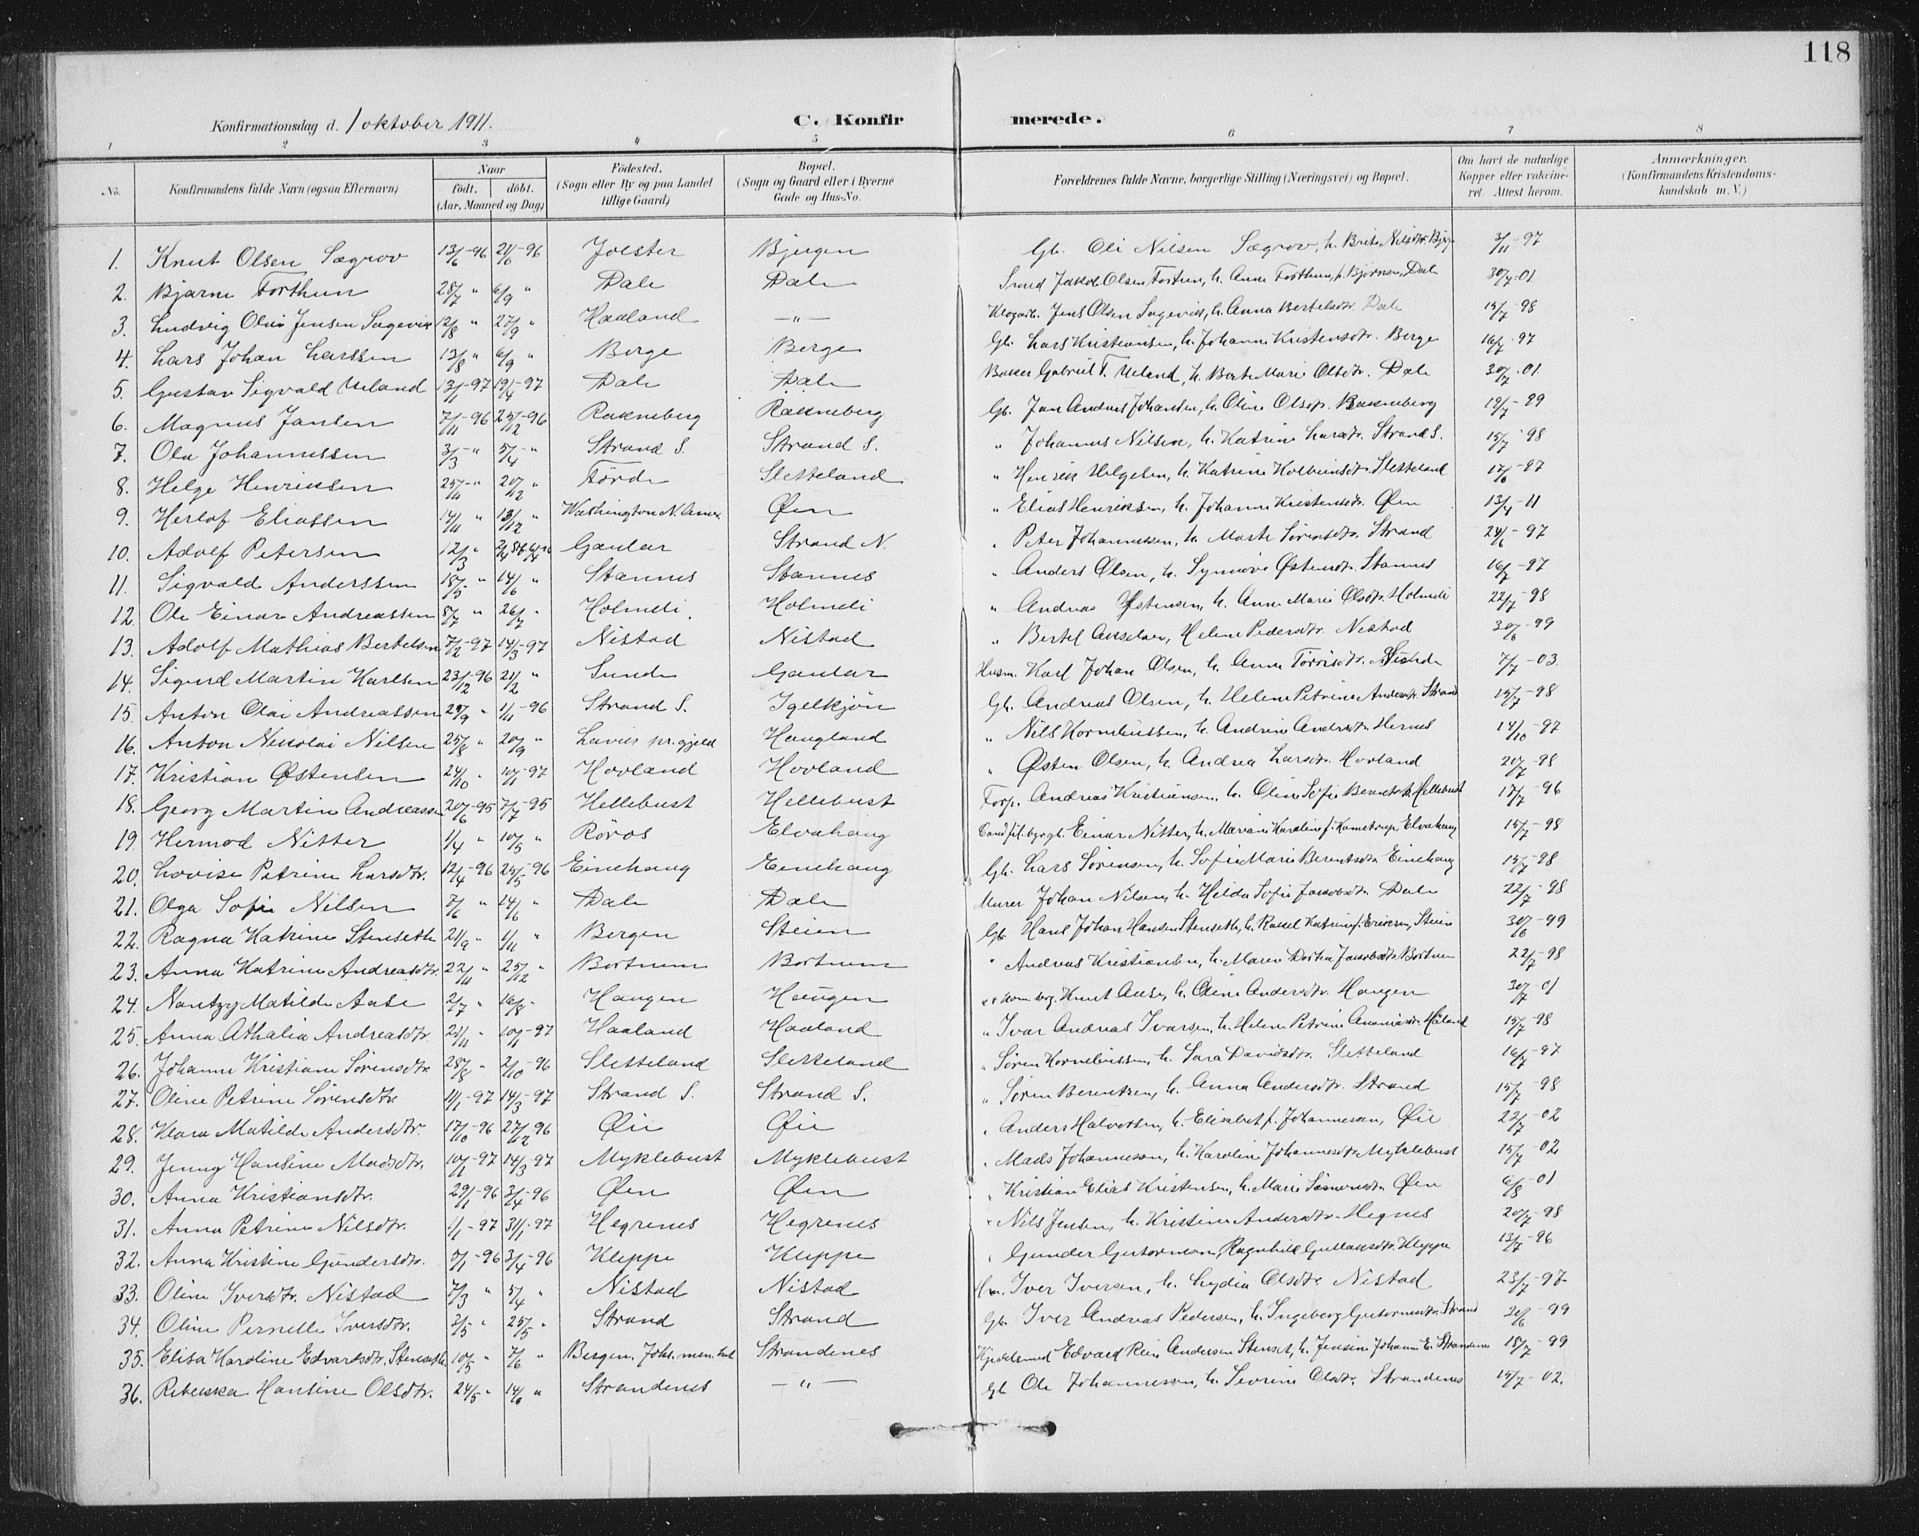 118
Konfirmationsdag d. 1 oktober 1911.
C. Konfir merede.
1 2 3 4 5 6 7 8
No. Konfirmandens fulde Navn (ogsaa Efternavn) Naar født. døbt. (Aar, Maaned og Dag) Fødested. (Sogn eller By og paa Landet tillige Gaard) Bopæl. (Sogn og Gaard eller i Byerne Gade og Hus-No. Forældrenes fulde Navne, borgerlige Stilling (Næringsvei) og Bopæl. Om havt de naturlige Kopper eller vakcineret. Attest herom. Anmærkninger. (Konfirmandens Kristendomskundskab m. V.)
1. Knut Olsen Sægrov 13/6-96 21/6-96 Jølster Bjergen Gb. Ole Nilsen Sægrov, h. Brite Nilsdtr. 3/11-97
2. Bjarne Forthun 28/7 " 6/9 " Dale Dale Jakob Olsen Fortun, h. Anne Forthun, f. Bjørnsen, Dale 30/7-01
3. Ludvig Olai Jensen Sagevik 12/8 " 27/9 " Haaland —"— Jens Olsen Sagevik, h. Anna Bertelsdtr. Dale 15/7-98
4. Lars Johan Larssen 13/8 " 6/9 " Berge Berge Gb. Lars Kristiansen, h. Johanne Kristensdtr. Berge 16/7-97
5. Gustav Sigvald Ueland 3/1-97 19/4-97 Dale Dale Gabriel T. Ueland, h. Berte Marie Olsdtr. Dale 30/7-01
6. Magnus Jansen 7/11-96 25/12-96 Rakneberg Rakneberg Gb. Jan Andreas Johansen, h. Oline Olsdtr. Rakneberg 19/7-99
7. Ole Johannessen 3/3 -" 5/4 -" Strand S. Strand S. " Johannes Nilsen, h. Katrine Larsdtr. Strand S. 15/7-98
8. Helge Henriksen 25/11 " 20/12 " Førde Sletteland " Henrik Helgesen, h. Katrine Kolbeinsdtr. Sletteland 17/6-97
9. Herlof Eliassen 14/11 " 13/12 " Washington N. Amer. Øen " Elias Henriksen, h. Johanne Kristensdtr. Øen 13/4-11
10. Adolf Petersen 12/3 " Gaular Strand N. " Peter Johannessen, h. Marte Sørensdtr. Strand 24/6-97
11. Sigvald Anderssen 18/5 " 14/6 " Stannes Stannes " Anders Olsen, h. Synnøve Østensdtr. Stannes 16/7-97
12. Ole Einar Andreassen 5/7 " 26/7 " Holmedi Holmedi " Andreas Østensen, h. Anne Marie Olsdtr. Holmedi 22/7-98
13. Adolf Mathias Bertelsen 7/2-97 14/3-97 Nistad Nistad " Bertel Anselsen, Helene Pedersdtr. Nistad 30/6-99
14. Sigurd Martin Karlsen 23/12-96 21/2 " Sunde Gaular Husm. Karl Johan Olsen, h. Anna Tørrisdtr. Sunde 7/7-03
15. Anton Olai Andreassen 29/9 " 1/11-96 Strand S. Igelkjøn Gb. Andreas Olsen, h. Helene Petrine Andersdtr. Strand 15/7-98
16. Anton Nikolai Nilsen 25/8 " 20/9 " Lavik pr.gjeld Haugland " Nils Korneliussen, h. Andrine Andersdtr. Hernes 14/10-97
17. Kristian Østensen 24/10 " 10/1-97 Hovland Hovland " Østen Olsen, h. Andrea Larsdtr. Hovland 20/7-98
18. Georg Martin Andreassen 20/6-95 7/7-95 Hellebust Hellebust Forp. Andreas Kristiansen, h. Oline Sofie Berentsdtr. Hellebust 17/7-96
19. Hermod Nitter 1/4 " 10/5 " Röros Elvahaug Cand. fil. bgrgb. Einar Nitter, h. Mariane Karoline f. Kametrup, Elvahaug 15/7-98
20. Lovise Petrine Larsdtr. 12/4-96 25/5-96 Einehaug Einehaug Gb. Lars Sørensen, h. Sofie Marie Berentsdtr. Einehaug 15/7-98
21. Olga Sofie Nilsen 7/6 " 14/6 " Dale Dale Murer Johan Nilsen, h. Hilda Sofie Jakobsdtr. Dale 22/7-98
22. Ragna Katrine Stenseth 21/9 " 1/11 " Bergen Steien Gb. Hans Johan Hansen Stenseth, h. Rakel Katrine f. Eriksen, Steien 30/6-99
23. Anna Katrine Andreasdtr. 22/11 " 25/12 " Bortnem Bortnem " Andreas Kristiansen, h. Maren Dortea Jakobsdtr. Bortnen 22/7-98
24. Nantzy Matilde Aase 2/7 " 16/8 " Haugen Haugen Knut Aase, h. Oline Andersdtr. Haugen 30/7-01
25. Anna Athalia Andreasdtr. 21/11 " 10/1-97 Haaland Haaland " Ivar Andreas Ivarsen, h. Helene Petrine Ananiasdtr. Håland 15/7-98
26. Johanne Kristiane Sørensdtr. 28/8 " 2/10-96 Sletteland Sletteland " Søren Korneliussen, h. Sara Davidsdtr. Sletteland 16/7-97
27. Oline Petrine Sørensdtr. 11/1-97 14/3-97 Strand S. Strand S. " Søren Berentsen, h. Anna Andersdtr. Strand 15/7-98
28. Klara Matilde Andersdtr. 17/10-96 27/12-96 Øie Øie " Anders Halvorsen, h. Elisabet f. Johannesen, Øie 22/7-02
29. Jenny Hansine Madsdtr. 10/1-97 14/3-97 Myklebust Myklebust " Mads Johannesen, h. Karoline Johannesdtr. Myklebust 15/7-02
30. Anna Kristiansdtr. 29/1-96 3/4-96 Øen Øen " Kristian Elias Kristensen, h. Marie Simonsdtr. Øen 6/8-01
31. Anna Petrine Nilsdtr. 1/1-97 31/1-97 Hegrenes Hegrenes " Nils Jensen, h. Kristine Andersdtr. Hegnes 20/7-98
32. Anna Kristine Gundersdtr. 5/1-96 3/4-96 Kleppe Kleppe " Gunder Guttorman, Ragnhild Gullaksdtr. Kleppe 13/7-96
33. Oline Iversdtr. Nistad 7/3 " 5/4 " Nistad Nistad Hm. Iver Iversen, h. Lydia Olsdtr. Nistad 23/7-97
34. Oline Pernelle Iversdtr. 2/5 " 25/5 " Strand Strand Gb. Iver Andreas Pedersen, h. Ingeborg Guttormsdtr. Strand 20/6-99
35. Elisa Karoline Edvardsdtr. Stenseth 10/5 " 7/6 " Bergen, Johs. menhet Strandenes Edvard Rein Andersen Stenset, h. Jensine Johanne E. Strandenes 15/7-99
36. Rebekka Hansine Olsdtr. 24/5 " 14/6 " Strandenes —"— Gb. Ole Johannessen, h. Severine Olsdtr. Strandenes 15/7-02.